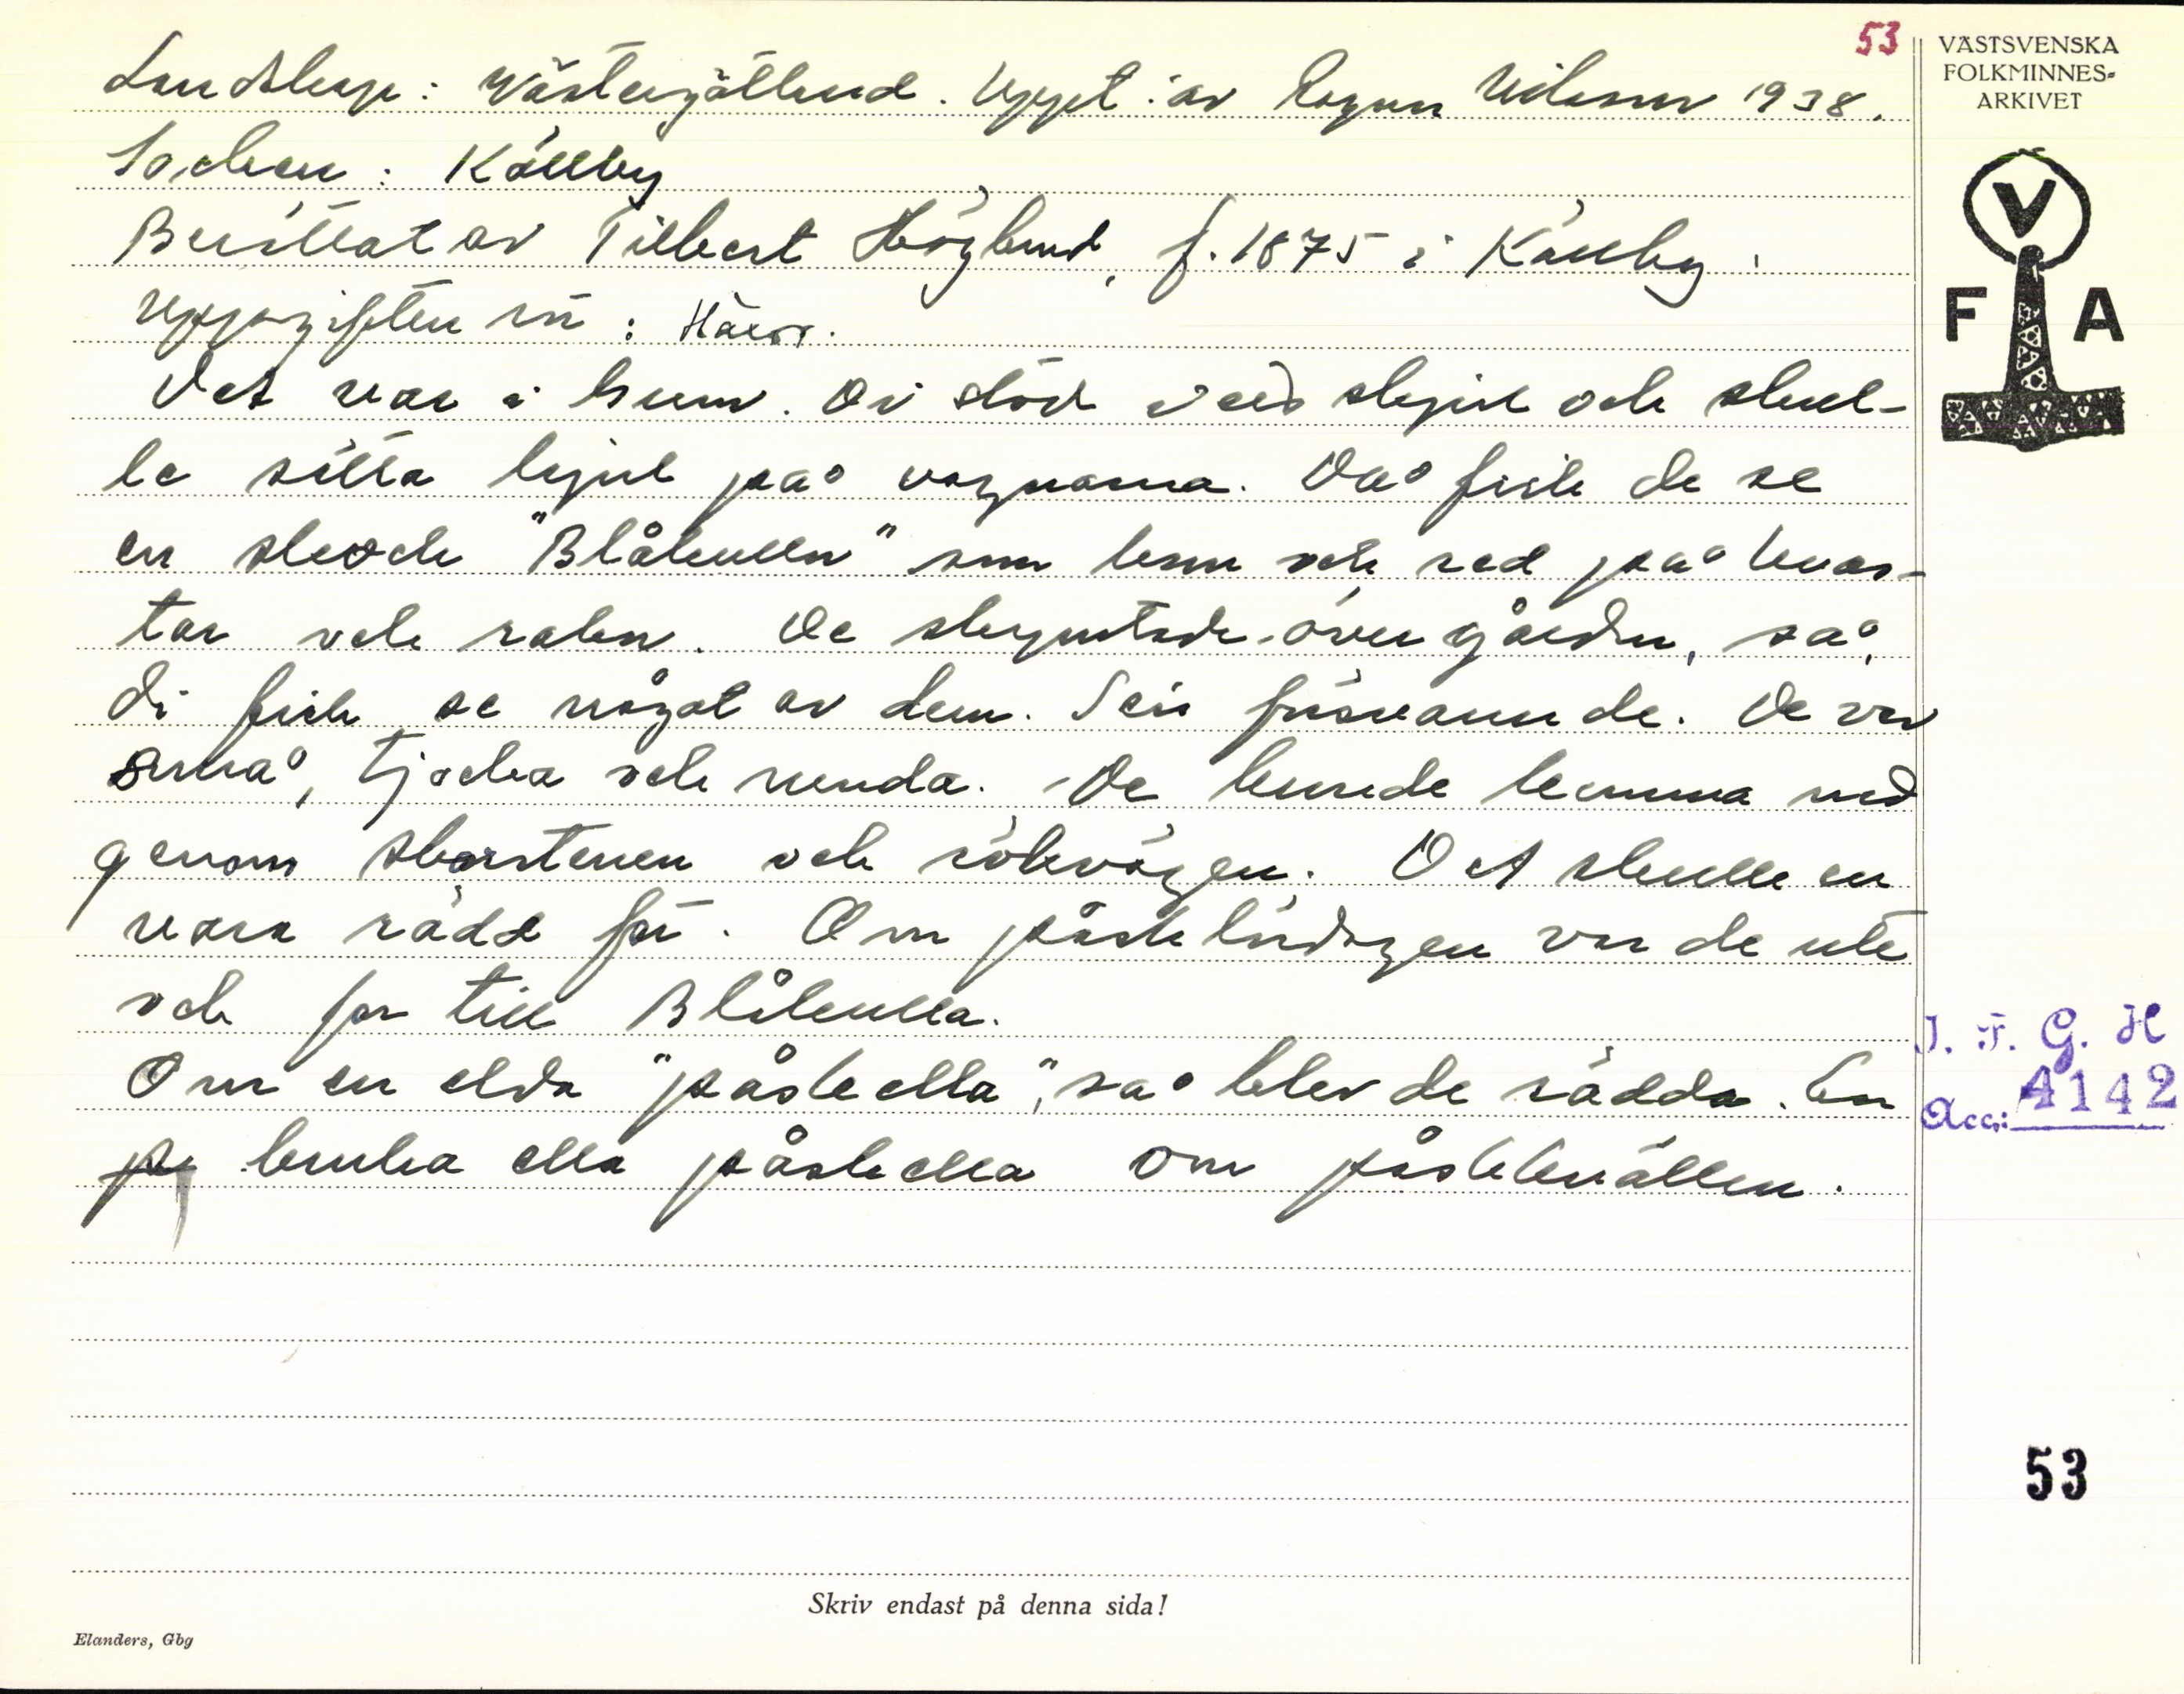 53
VÄSTSVENSKA
FOLKMINNES-
ARKIVET
Landskap: Västergötland. Uppt. av Ragnar Nilsson 1938.
Socken: Källby
Berättat av Filbert Höglund, f. 1875 i Källby.
Uppgiften rör:
V
F A
Det var i Di stod ved skjul och skul-
le sätta hjul på vagnarna. Då fick de se
en skock "Blåkulln" som kom och red på kvas-
tar och rakor. De skymtade över gården, så
di fick se något av dem. Sen försvann de. De var
små, tjocka och runda. De kunde komma ned
genom skorstenen och rökvägen. Det skulle en
vara rädd för. Om påsklördagen var de ute
och for till Blåkulla.
Om en elda "påskella", så blev de rädda. En
bruka ella påskella om påskkvällen.
I. F. G. H
Acc: 4142
53
Skriv endast på denna sida!
Elanders, Gbg